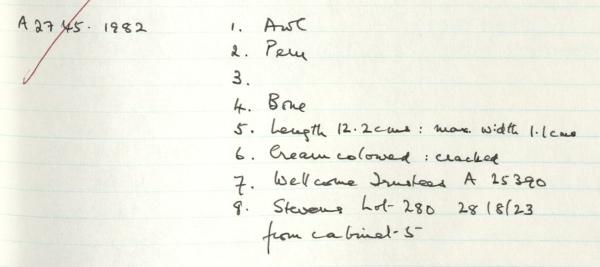 A 2745. 1982
1. Awl
2. Peru
3.
4. Bone
5. Length 12.2cms : max. width 1.1cms
6. Cream coloured : cracked
7. Wellcome Trustees A 25390
8. Stevens Lot 280 28/8/23
from cabinet 5